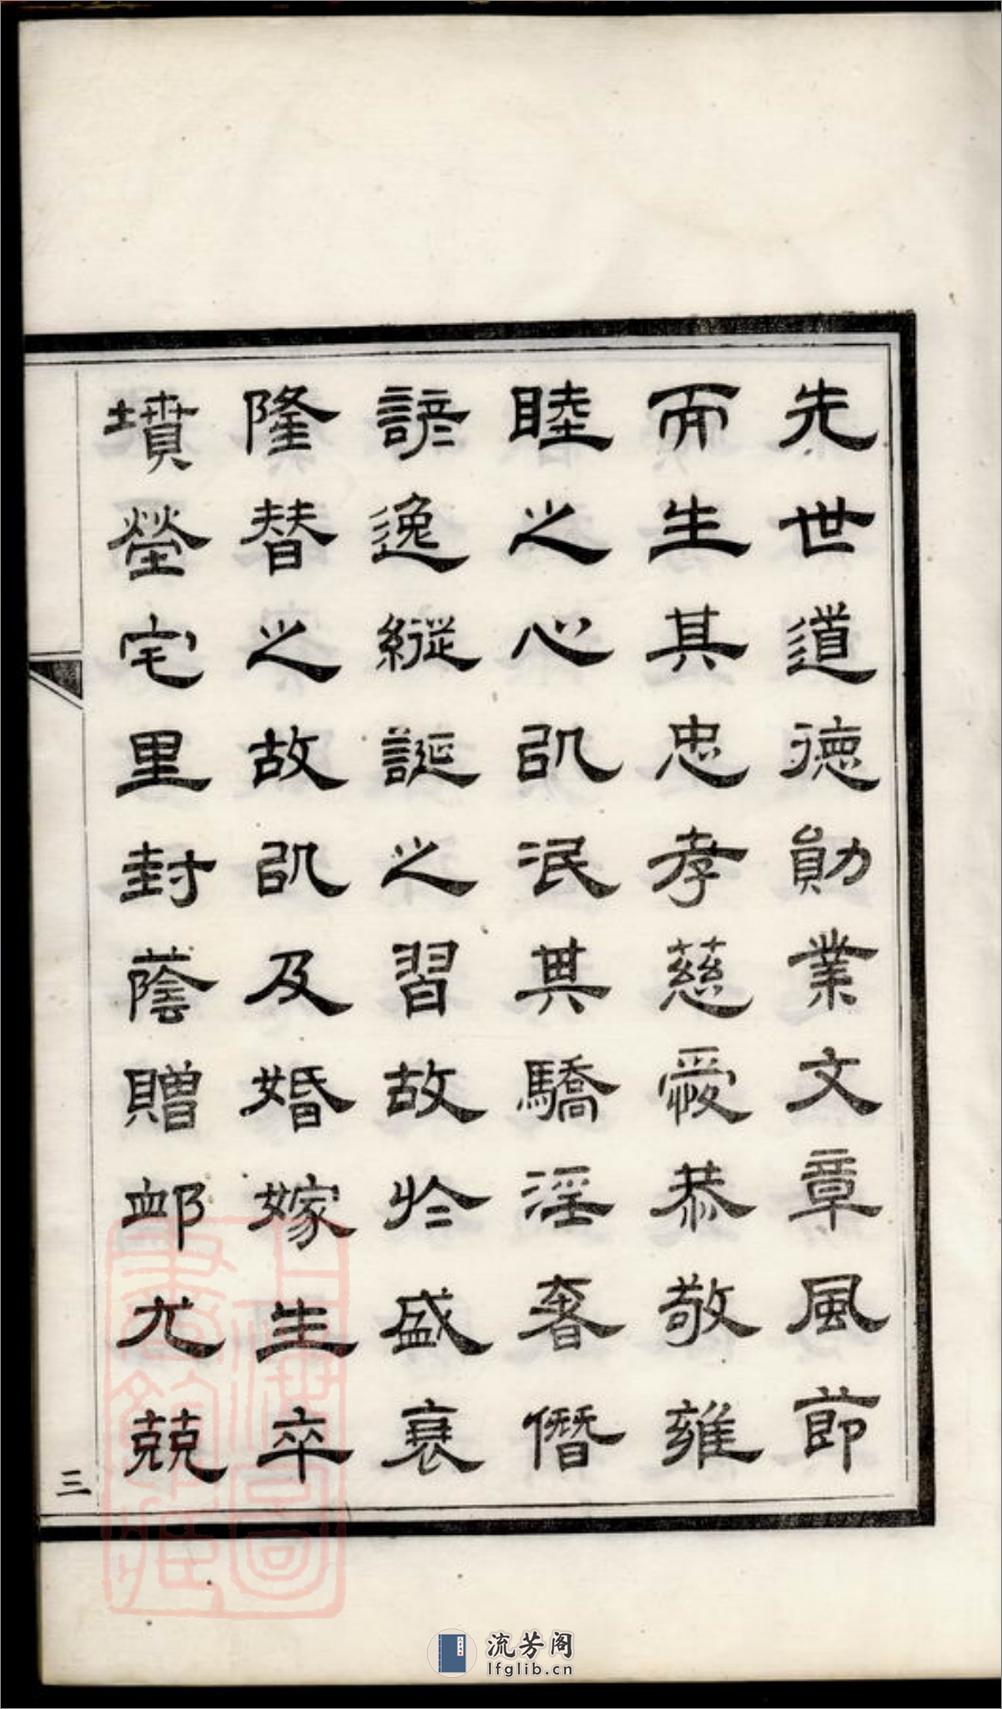 先世道德勛業文章風節
而生其忠孝慈愛恭敬雍
睦之心以泯其驕淫奢僭
諺逸縱誕之習故於盛衰
隆替之故以及婚嫁生卒
墳塋宅里封蔭贈卹尤兢
三
上海圖書館藏
流芳阁
lfglib.cn